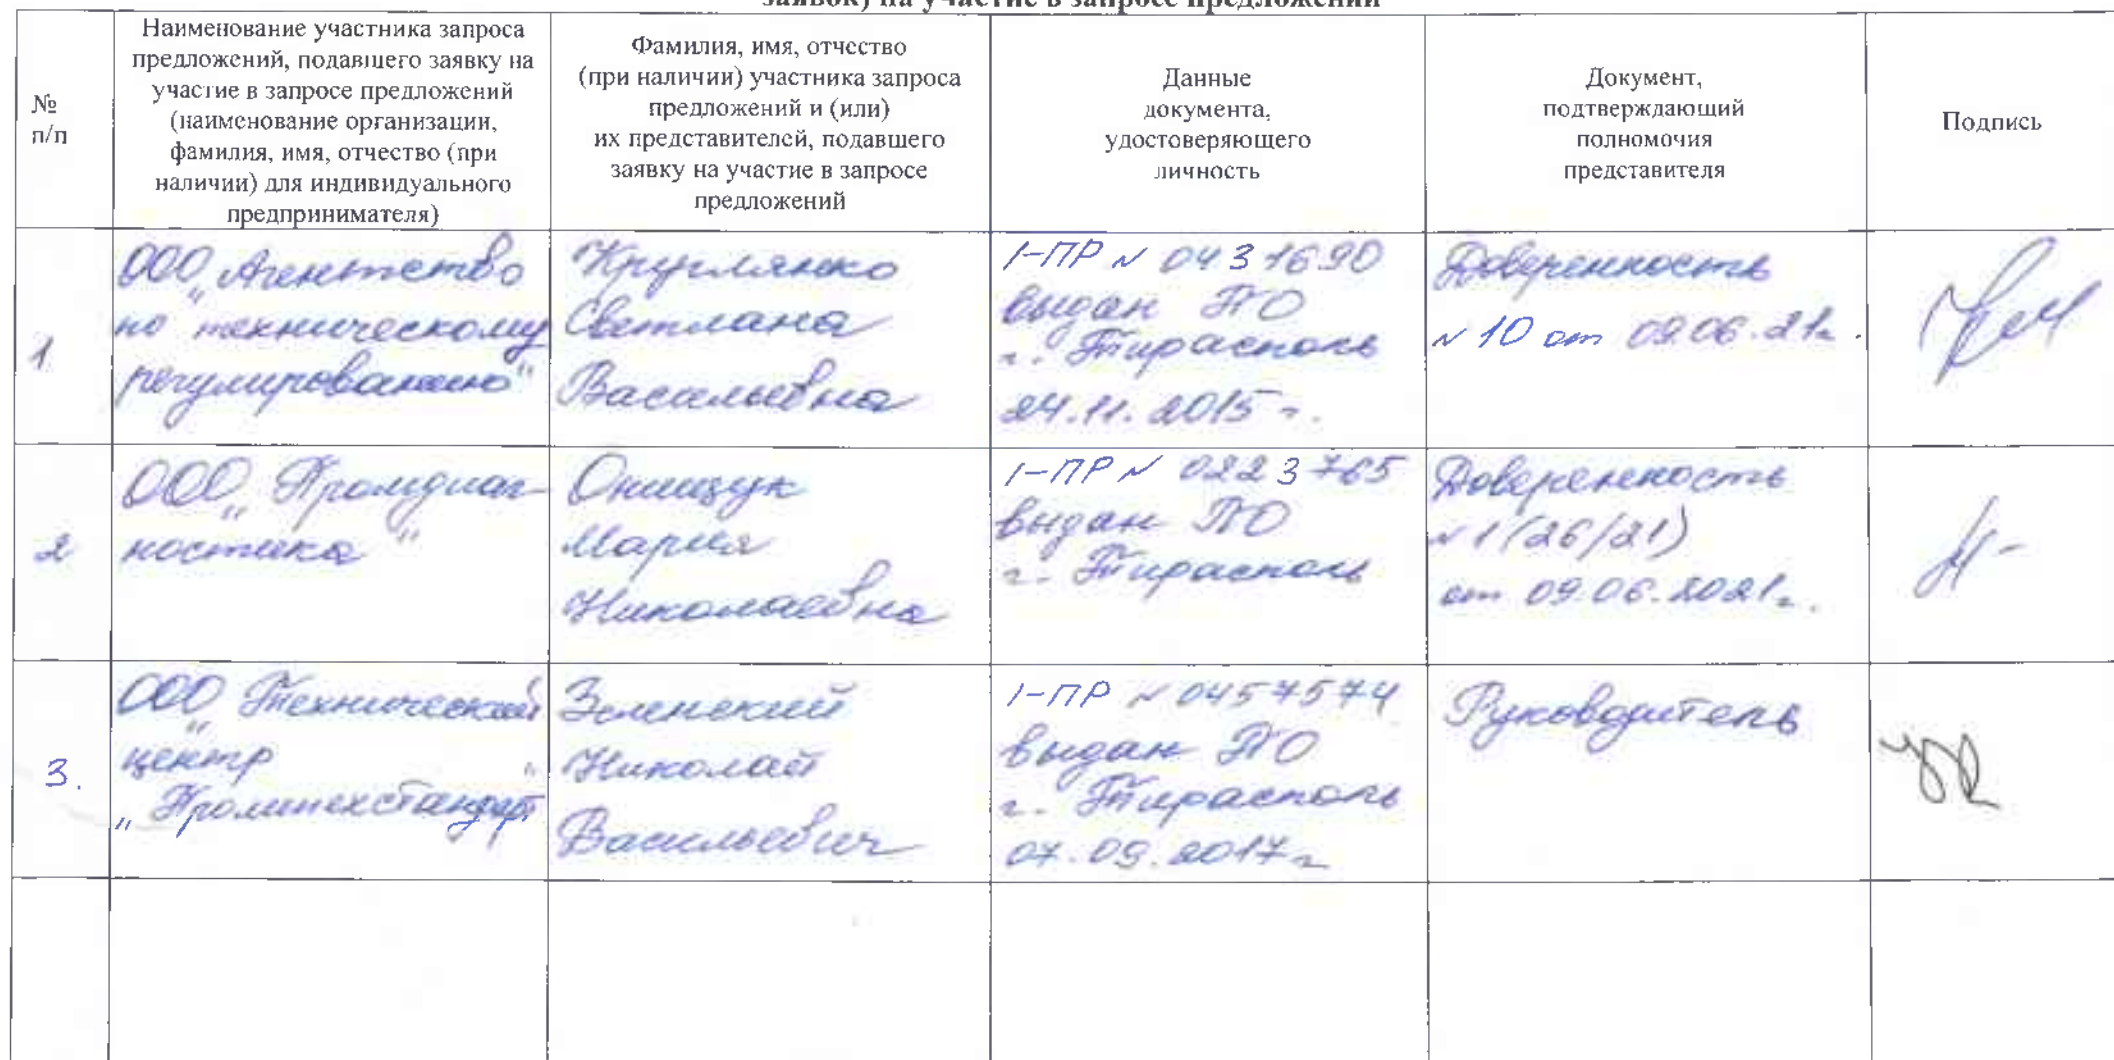 заявок) на участие в запросе предложений
№
п/п
Наименование участника запроса
предложений, подавшего заявку на
участие в запросе предложений
(наименование организации,
фамилия, имя, отчество (при
наличии) для индивидуального
предпринимателя)
Фамилия, имя, отчество
(при наличии) участника запроса
предложений и (или)
их представителей, подавшего
заявку на участие в запросе
предложений
Данные
документа,
удостоверяющего
личность
Документ,
подтверждающий
полномочия
представителя
Подпись
1
ООО „Агентство
по техническому
регулированию"
Круглянко
Светлана
Васильевна
1-ПР № 0431690
выдан ПО
г. Тирасполь
24.11.2015 г.
Доверенность
№ 10 от 09.06.21г.
2
ООО „Промдиаг-
ностика"
Онищук
Мария
Николаевна
1-ПР № 0223765
выдан ПО
г. Тирасполь
Доверенность
№ 1(26/21)
от 09.06.2021г.
3.
ООО „Технический
центр"
„Промтехстандарт"
Зеленский
Николай
Васильевич
1-ПР № 0457574
выдан ПО
г. Тирасполь
07.09.2017г
Руководитель